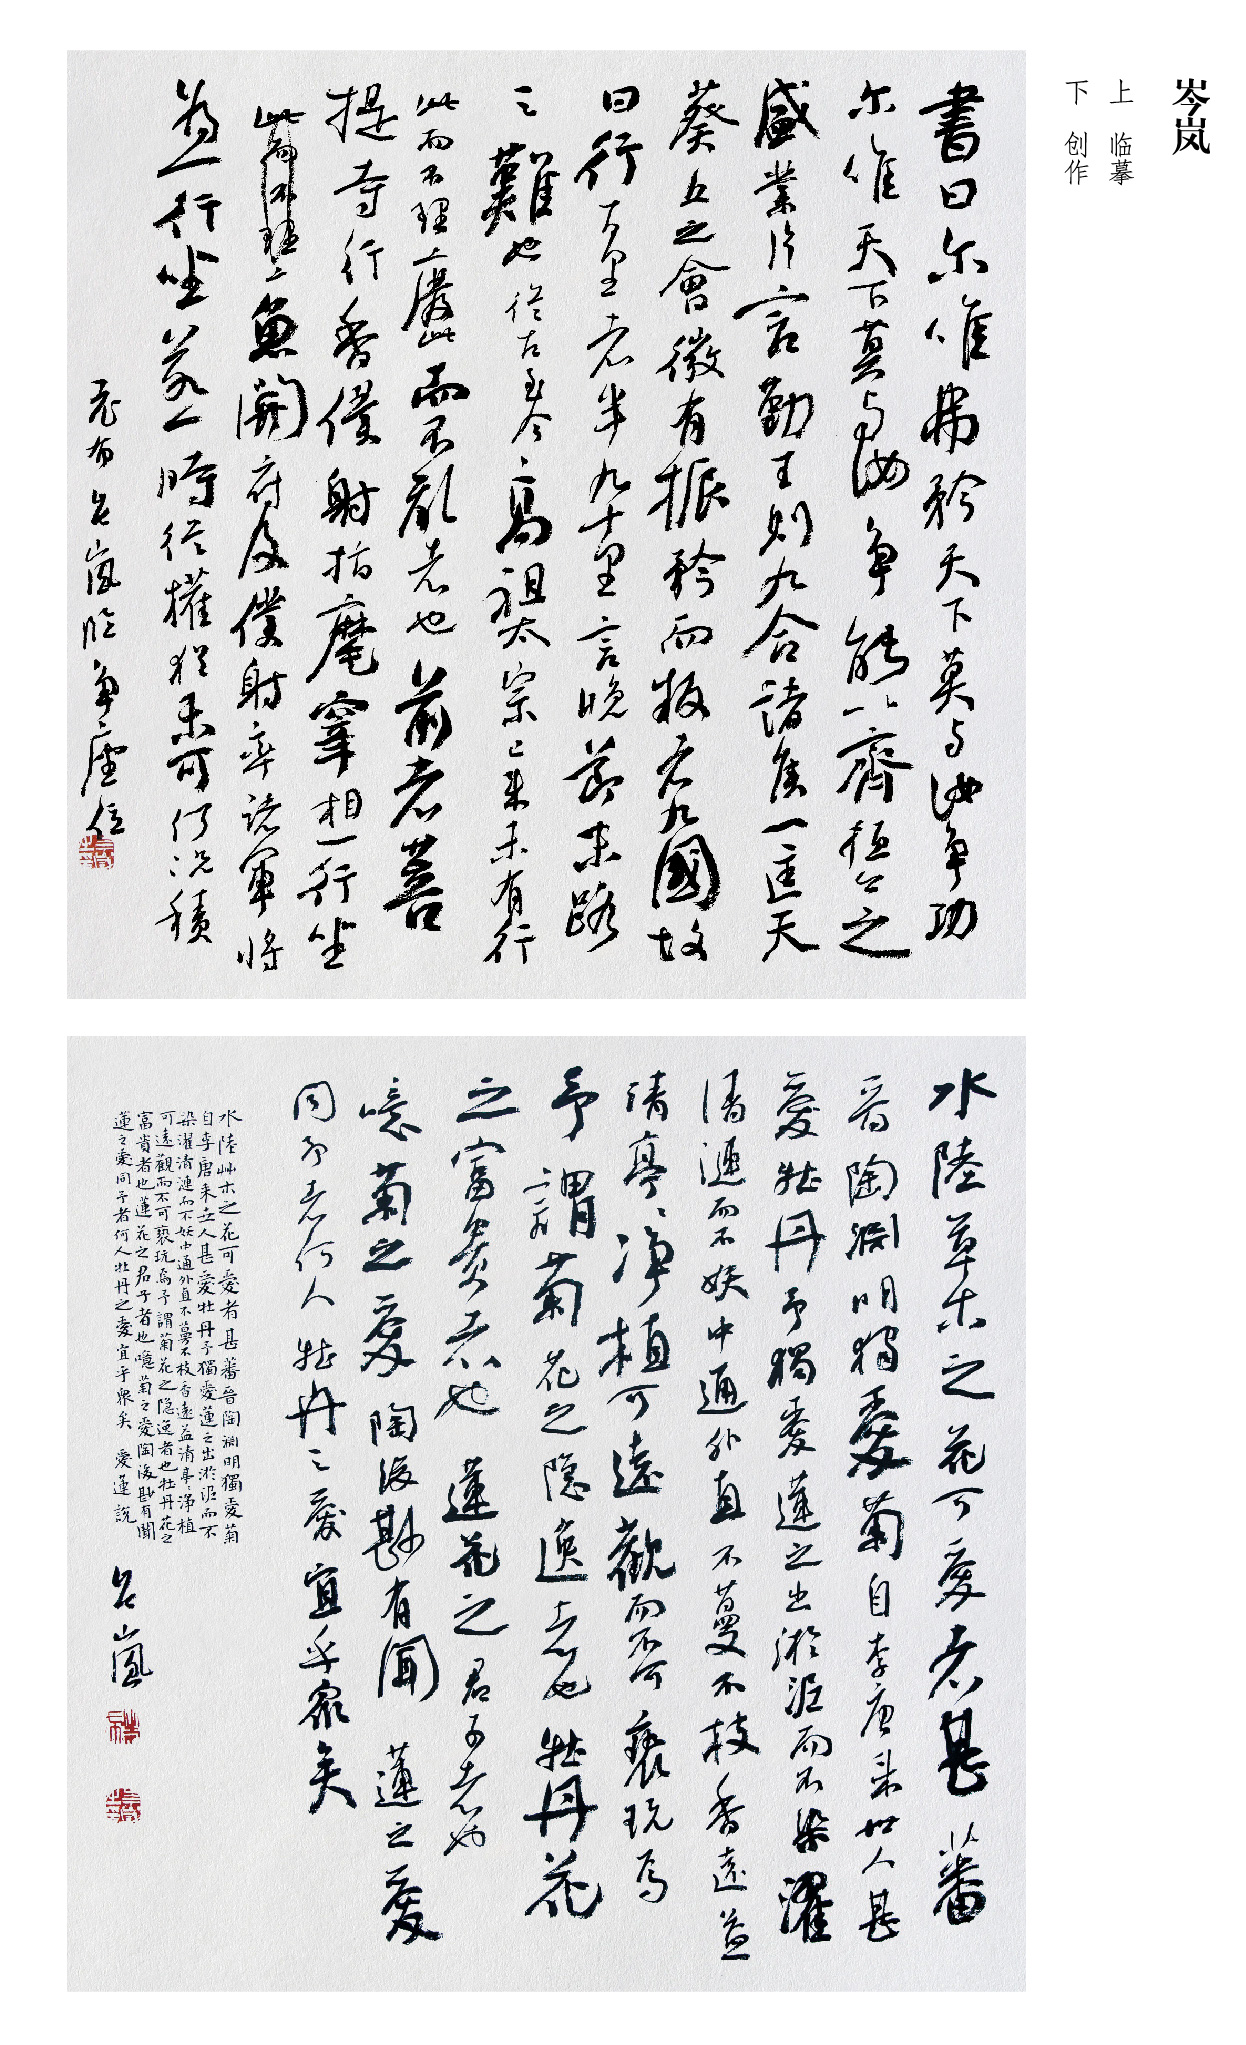 岑岚
上 临摹
下 创作
書曰尔唯弗矜天下莫与汝争功
尔唯天下莫与汝争能以齊桓公之
盛業片言勤王則九合諸侯一匡天
葵丘之會微有振矜而叛者九國故
曰行百里者半九十里言晚節末路
之難也從古至今、高祖太宗已来未有行
此而不理廢此而不亂者也前者菩
提寺行香僕射指麾宰相一行坐
此而不理、魚開府及僕射率諸軍將
為一行坐若一時從權猶未可何況積
岑嵐临争座位
水陸草木之花可愛者甚蕃
晉陶淵明獨愛菊自李唐来世人甚
愛牡丹予獨愛蓮之出淤泥而不染濯
清漣而不妖中通外直不蔓不枝香遠益
清亭、淨植可遠觀而不可褻玩焉
予謂菊花之隐逸者也牡丹花
之富貴者也蓮花之君子者也
噫菊之愛陶後尠有聞蓮之愛
同予者何人牡丹之愛宜乎眾矣
水陸艸木之花可愛者甚蕃晉陶淵明獨愛菊
自李唐来世人甚愛牡丹予獨愛蓮之出淤泥而不
染濯清漣而不妖中通外直不蔓不枝香遠益清亭、淨植
可遠觀而不可褻玩焉予謂菊花之隐逸者也牡丹花之
富貴者也蓮花之君子者也噫菊之愛陶後尠有聞
蓮之愛同予者何人牡丹之愛宜乎眾矣 愛蓮說
岑嵐